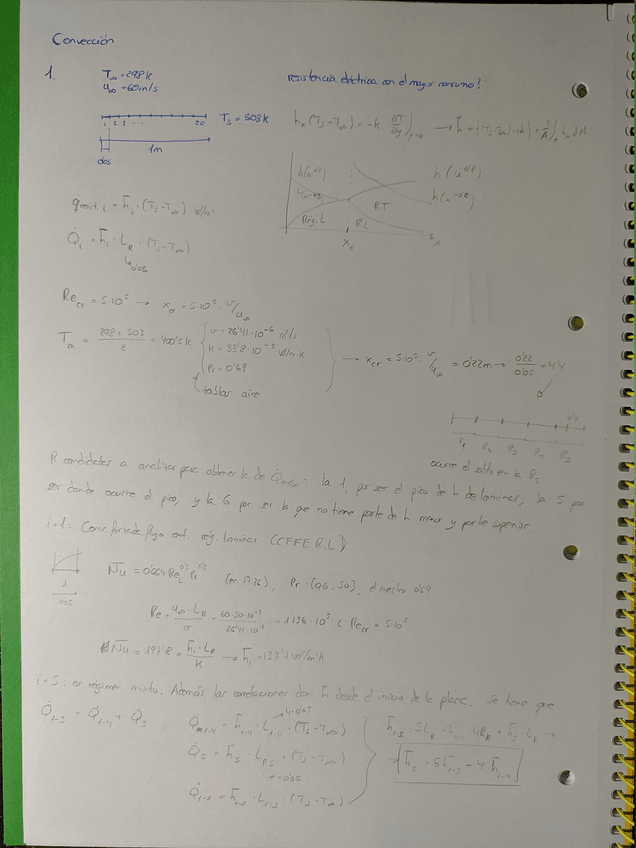 Convección
1. T∞ = 298 K
u∞ = 60 m/s
resistencia eléctrica con el mayor consumo?
1 2 3 ... 20 Ts = 503 K
0'05 1m
hx (Ts - T∞) = -k ∂T/∂y)y=0
h (u^0'8)
h(u^0'5)
h(x^-0'2)
RT
Rég. L R.L
xc
Q̇1 = h̄1 · LR · (Ts - T∞)
0'05
Recr = 5·10^5 → xcr = 5·10^5 · υ/u∞
Tm = (298 + 503)/2 = 400'5 K { υ = 26'41·10^-6 m²/s
k = 33'8·10^-3 W/m·K
Pr = 0'69
tablas aire
→ xcr = 5·10^5 · υ/u∞ = 0'22 m → 0'22/0'05 = 4'4
4'4
R1 R2 R3 R4 R5
ocurre el salto en la R5
R candidatas a analizar para obtener la de Q̇max: la 1, por ser el pico de h de laminar, la 5 por
ser donde ocurre el pico, y la 6 por ser la que no tiene parte de h menor y parte superior
i=1: Conv. forzada flujo ext. rég. laminar (CFFE R.L)
N̄u = 0'664 Re_L^0'5 Pr^1/3 , Pr: [0'6, 50], el nuestro 0'69
1
0'05
Re = u∞ · LR/υ = 60·50·10^-3/26'41·10^-6 = 1'136·10^5 < Recr = 5·10^5
N̄u = 197'8 = h̄1 · LR/K → h̄1 = 133'7 W/m²K
i=5: es régimen mixto. Además las correlaciones dan h̄ desde el inicio de la placa. Se tiene que
Q̇1-5 = Q̇1-4 + Q̇5 , Q̇1-4 = h̄1-4 · L1-4 · (Ts - T∞)
4·0'05
Q̇5 = h̄5 · LR5 · (Ts - T∞)
0'05
Q̇1-5 = h̄1-5 · L1-5 · (Ts - T∞)
h̄1-5 · 5LR = h̄1-4 · 4LR + h̄5 · LR →
→ h̄5 = 5h̄1-5 - 4h̄1-4